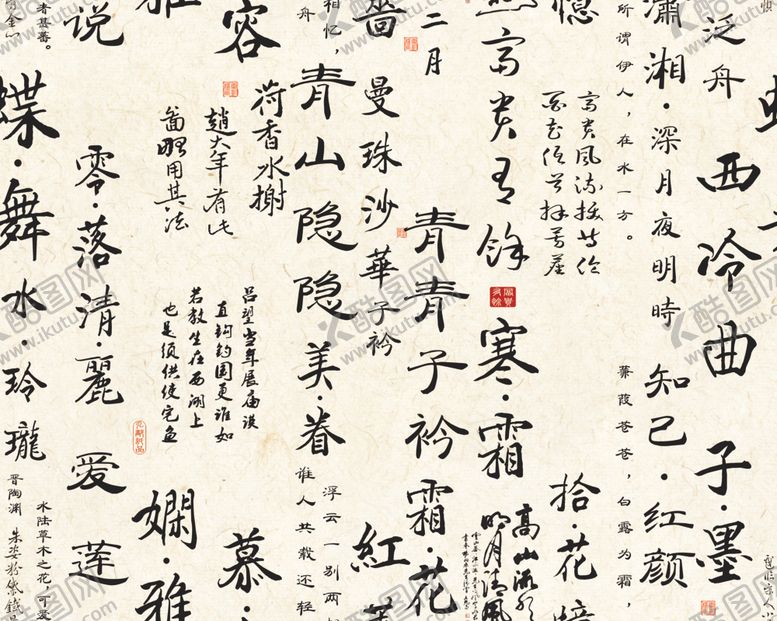 蝶·舞
水·玲瓏
晋陶渊
水陆草木之花，可爱
者甚蕃。
说
零·落
清·麗
爱
莲
嫻·雅
容
趙大年有此
笛
用其法
荷香水榭
吕望当年展庙谟
直钩钓国更谁如
若教生在西湖上
也是须供使宅鱼
慕·
青山隐隐
美·眷
谁人共载还轻
浮云一别
相忆，
舟
曼珠沙華
子衿
紅
二月
青青子衿
霜·花
富贵有餘
寒·霜
高山流
明月清風
憶
拾·花
所谓伊人，在水一方。
蒹葭苍苍，白露为霜，
瀟湘·深
月夜明時
知己·红颜
泛舟
西冷曲
子·墨